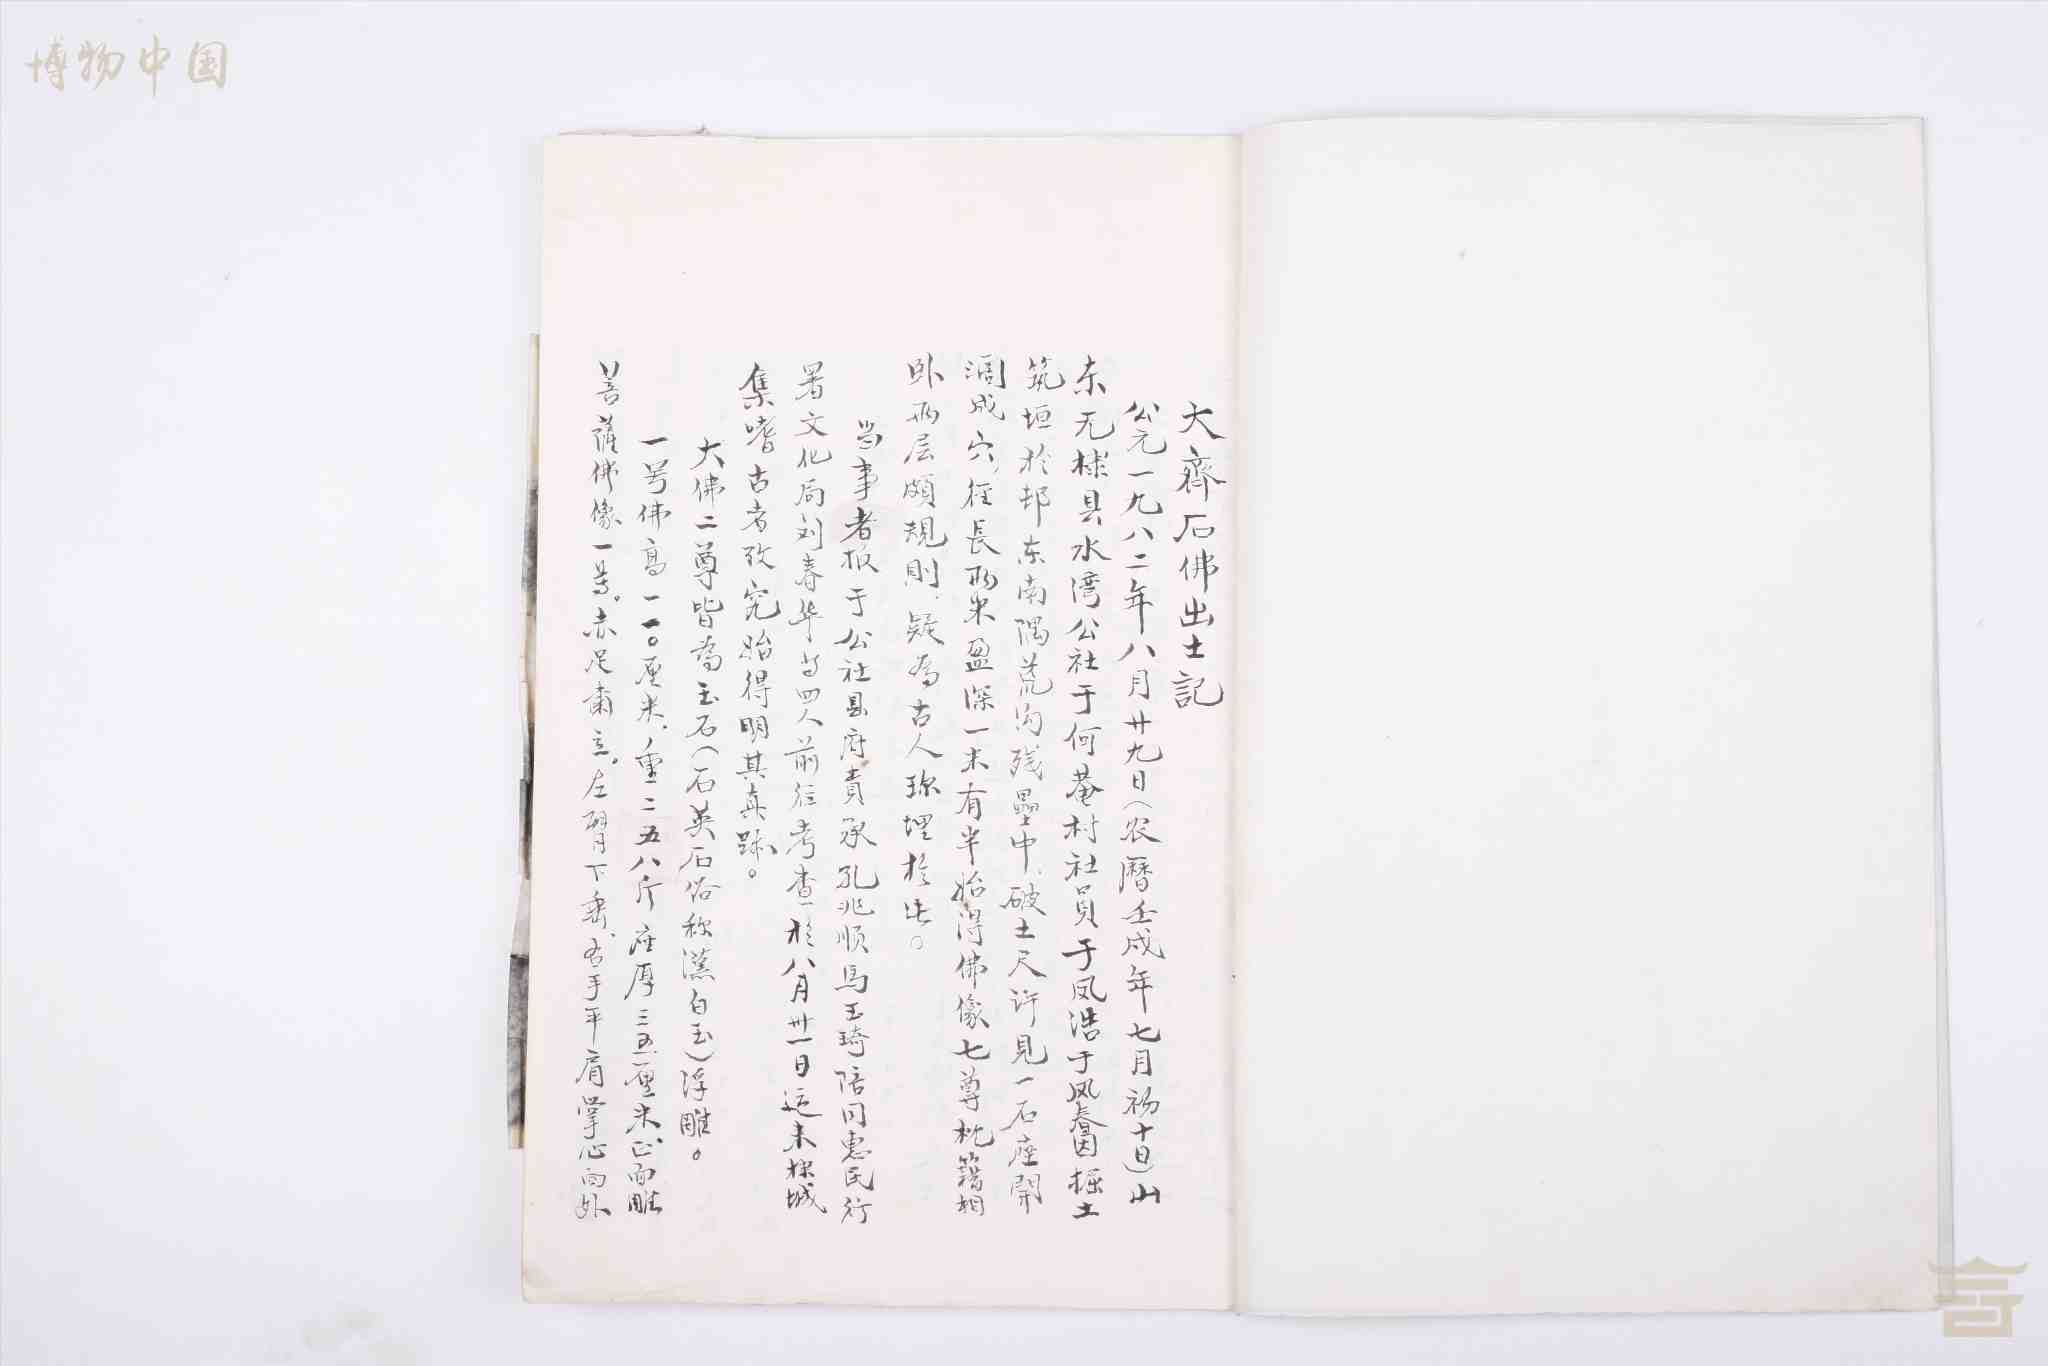 博物中国
大齊石佛出土記
公元一九八二年八月廿九日（农曆壬戌年七月初十日）山
东无棣县水湾公社于何菴村社員于凤浩于凤春因掘土
筑垣於邨东南隅荒沟残壘中、破土尺许見一石座開
涸成穴、径長两米盈深一米有半始得佛像七尊枕籍相
卧两层頗規則、疑為古人珎埋於此。
当事者报于公社县府責承孔兆顺馬玉琦陪同惠民行
署文化局刘春华等四人前往考查於八月卅一日运来棣城
集嗜古者致究始得明其真跡。
大佛二尊皆為玉石（石英石俗称漢白玉）浮雕。
一号佛高一一〇厘米、重二五八斤座厚三五厘米、正面雕
菩薩佛像一尊。赤足肅立。左臂下垂、右手平肩掌心向外